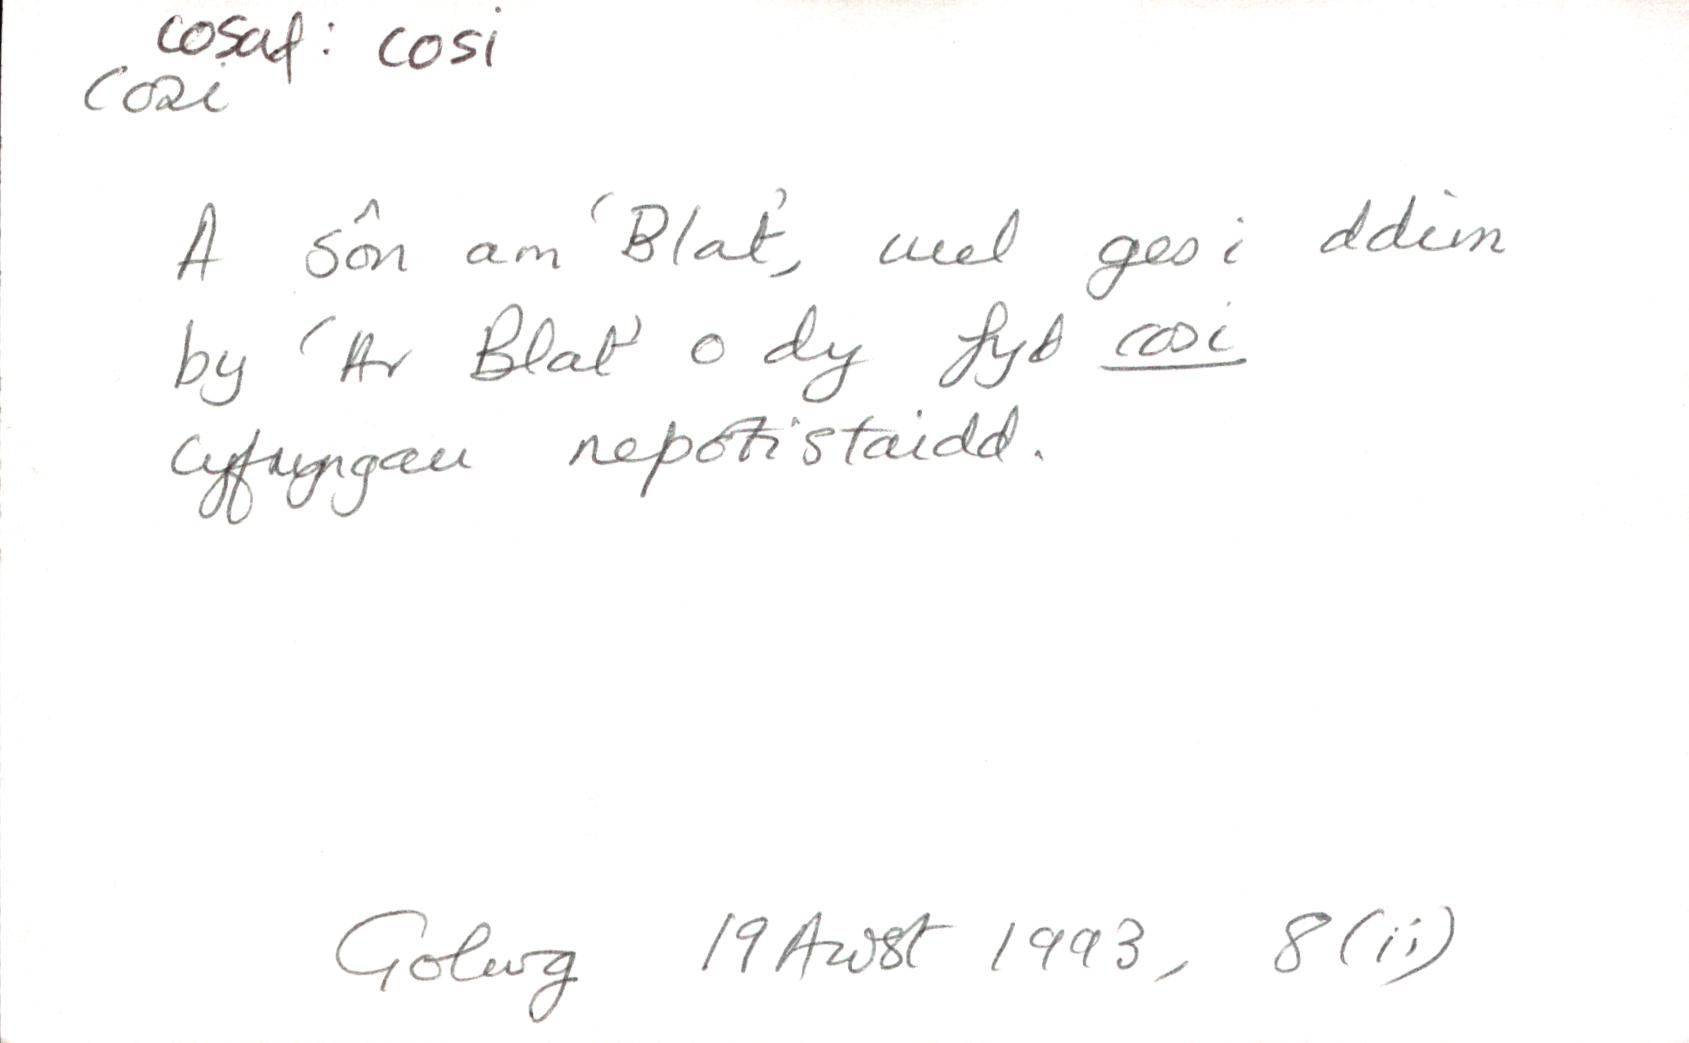 cosaf: cosi
Cosi
A sôn am 'Blat', wel ges i ddim
by 'Ar Blat' o dy fyd cosi
cyfryngau nepotistaidd.
Golwg 19 Awst 1993, 8(ii)